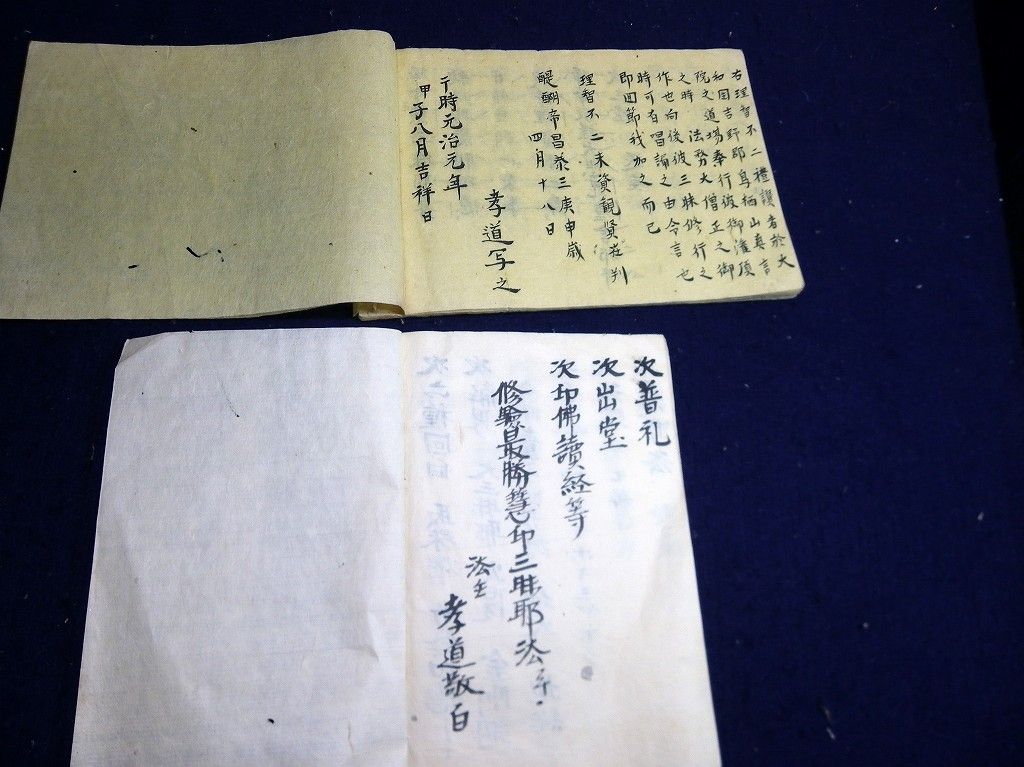 右理智不二禮讃者於大
和国吉野郡鳥栖山真言
院之道場奉行彼御灌頂
之時法務大僧正之御
作也向後彼三昧修行之
時可有唱誦之由令言也
即回節我加之而已
理智不二末資観賢在判
醍醐帝昌泰三庚申歳
四月十八日
孝道写之
于時元治元年
甲子八月吉祥日
次普礼
次出堂
次印佛讀経等
修驗最勝慧印三昧耶法
法主
孝道敬白